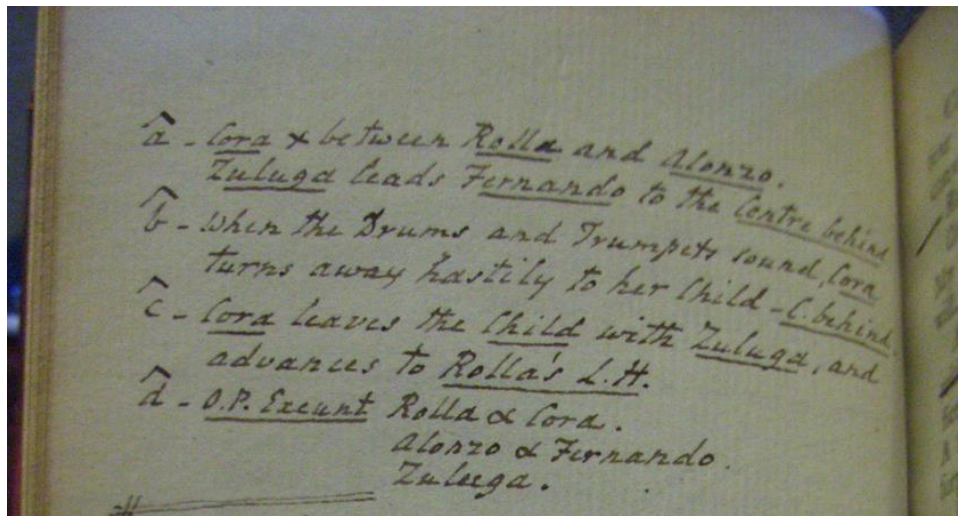 a - Cora + between Rolla and Alonzo.
Zuluga leads Fernando to the Centre behind
b - When the Drums and Trumpets sound, Cora
turns away hastily to her Child - C. behind.
c - Cora leaves the Child with Zuluga, and
advances to Rolla's L.H.
d - O.P. Exeunt Rolla & Cora.
Alonzo & Fernando.
Zuluga.